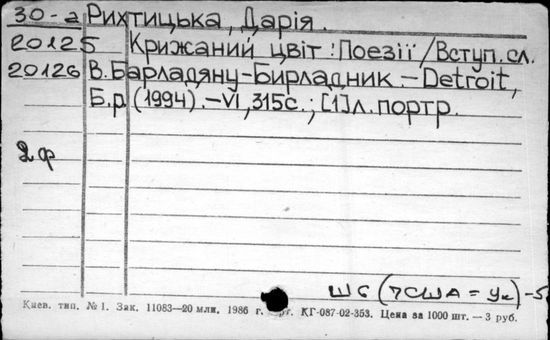 30-а Рихтицька, Дарія.
20125 Крижаний цвіт : Поезії / Вступ. сл.
20126 В. Барладяну-Бирладник. – Detroit,
Б.р. (1994). – VI, 315с. ; [1]л. портр.
2ф
Ш6 (7США = Ук) - 5
Киев. тип. № 1. Зак. 11083—20 млн. 1986 г. КГ-087-02-353. Цена за 1000 шт. — 3 руб.